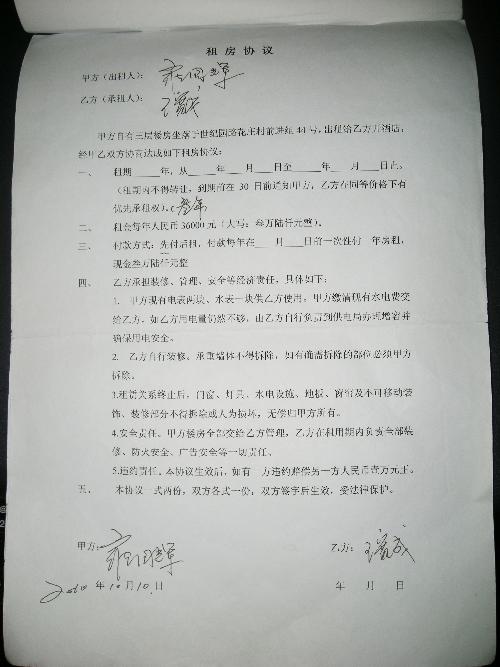 租房协议
甲方（出租人）：
乙方（承租人）：
甲方自有三层楼房坐落于世纪园路花庄村前进组44号，出租给乙方开酒店，
经甲乙双方协商达成如下租房协议：
一、 租期 年，从 年 月 日至 年 月 日止。
（租期内不得转让，到期前在30日前通知甲方，乙方在同等价格下有
优先承租权）。（叁年
二、 租金每年人民币36000元（大写：叁万陆仟元整）。
三、 付款方式：先付后租，付款每年在 月 日前一次性付一年房租，
现金叁万陆仟元整
四、 乙方承担装修、管理、安全等经济责任，具体如下：
1. 甲方现有电表两块、水表一块供乙方使用，甲方缴清现有水电费交
给乙方，如乙方用电量仍然不够，由乙方自行负责到供电局办理增容并
确保用电安全。
2. 乙方自行装修。承重墙体不得拆除，如有确需拆除的部位必须甲方
拆除。
3.租赁关系终止后，门窗、灯具、水电设施、地板、窗帘及不可移动装
饰、装修部分不得拆除或人为损坏，无偿归甲方所有。
4.安全责任。甲方楼房全部交给乙方管理，乙方在租用期内负责全部装
修、防火安全、广告安全等一切责任。
5.违约责任。本协议生效后，如有一方违约赔偿另一方人民币壹万元正。
五、 本协议一式两份，双方各式一份，双方签字后生效，受法律保护。
甲方： 乙方：
2010年10月10日 年 月 日